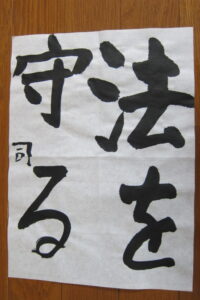 法を
守る
司